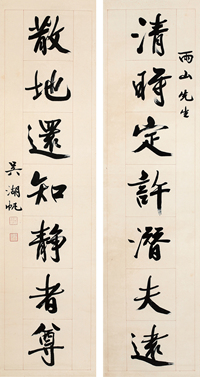 雨山先生
清時定許潛夫遠
散地還知靜者尊
吳湖帆